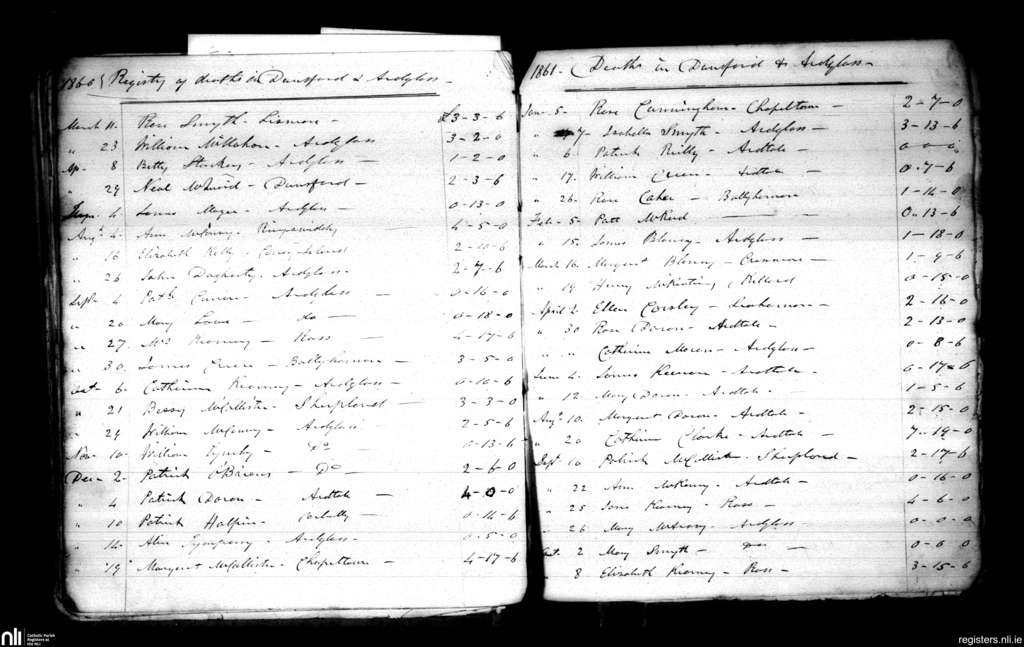 1860 Registry of deaths in Dunsford & Ardglass -
March 11. Rose Smyth - Lismore - £3-3-6
" 23 William McMahon - Ardglass 3-2-0
Ap. 8 Betty - Ardglass - 1-2-0
" 29 Neal - Dunsford - 2-3-6
4 James - Ardglass - 0-13-0
Augt 4. Ann - 4-5-0
" 16 Elizabeth Kelly - 2-10-6
" 26 John Dogherty - Ardglass - 2-7-6
Sept. 4 Patk Curran - Ardglass - 0-16-0
" 20 Mary - do - 0-18-0
" 27. Mrs Kearney - Ross - 4-17-6
" 30. James - Ballyhornan - 3-5-0
Oct 6. Catherine Kearney - Ardglass - 0-10-6
" 21 Bessy McCallister - Sheepland - 3-3-0
" 29 William - Ardglass 2-5-6
Nov. 10. William - Do -13-6
Dec - 2. Patrick O'Briens - Do - 2-6-0
" 4 Patrick Doran - Ardtole - 4-0-0
" 10 Patrick Halpin - 0-14-6
" 14. - Ardglass - 0-5-0
" 19 Margaret McCallister - Chapeltown - 4-17-6
1861. Deaths in Dunsford & Ardglass -
Jan - 5 - Rose Cunningham - Chapeltown - 2-7-0
" 7 - Isabella Smyth - Ardglass - 3-13-6
" 6. Patrick Reilly - Ardtole - 0-0-0
" 17. William - Ardtole - 0-7-6
" 26. Rose - Ballyhornan 1-14-0
Feb - 5. Patt - 0-13-6
" 15. James Bloney - Ardglass - 1-18-0
March 16. Margaret Bloney - 1-9-6
" 19 Henry 0-15-0
April 2. Ellen - 2-16-0
" 30 Rose Doran - Ardtole - 2-13-0
" " Catherine Moran - Ardglass - 0-8-6
June 4. James Keenan - Ardtole - 0-17-6
" 12 Mary Doran - Ardtole - 1-5-6
Augt 10. Margaret Doran - Ardtole - 2-15-0
" 20 Catherine Clarke - Ardtole - 7-19-0
Sept 10 Patrick McCallister - Sheepland - 2-17-6
" 22 Ann McKenny - Ardtole - 0-16-0
" 25 Jane Kearney - Ross - 4-6-0
" 26 Mary - Ardglass 0-0-0
Oct. 2 Mary Smyth - do - 0-6-0
" 8 Elizabeth Kearney - Ross - 3-15-6
nli Catholic Parish Registers at the NLI
registers.nli.ie